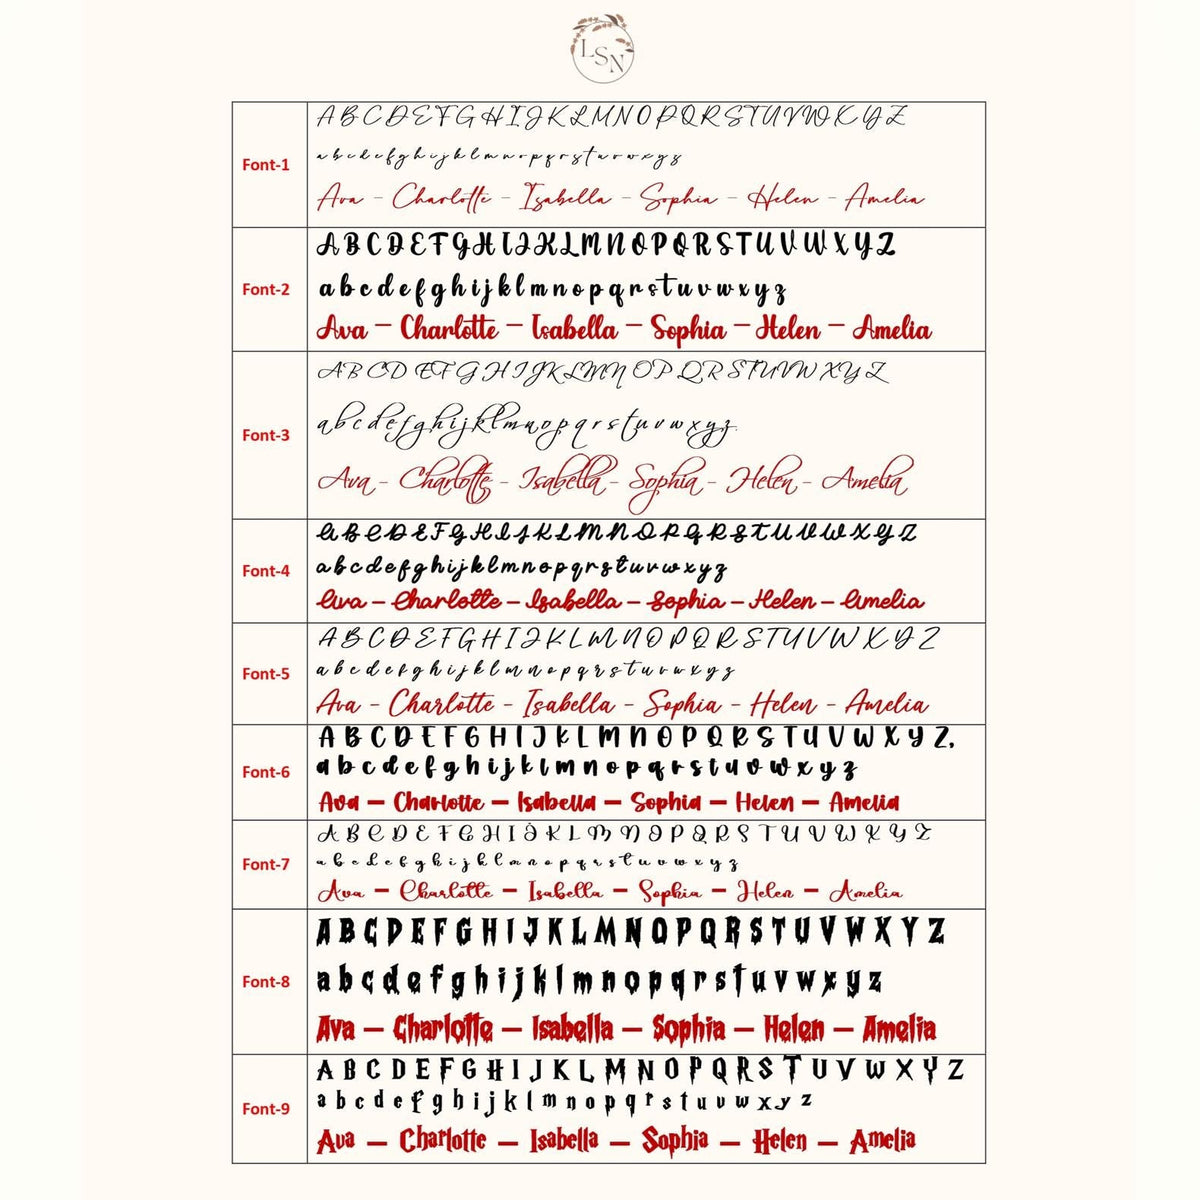 LSN
Font-1
A B C D E F G H I J K L M N O P Q R S T U V W X Y Z
a b c d e f g h i j k l m n o p q r s t u v w x y z
Ava - Charlotte - Isabella - Sophia - Helen - Amelia
Font-2
A B C D E F G H I J K L M N O P Q R S T U V W X Y Z
a b c d e f g h i j k l m n o p q r s t u v w x y z
Ava – Charlotte – Isabella – Sophia – Helen – Amelia
Font-3
A B C D E F G H I J K L M N O P Q R S T U V W X Y Z
a b c d e f g h i j k l m n o p q r s t u v w x y z
Ava - Charlotte - Isabella - Sophia - Helen - Amelia
Font-4
A B C D E F G H I J K L M N O P Q R S T U V W X Y Z
a b c d e f g h i j k l m n o p q r s t u v w x y z
Ava – Charlotte – Isabella – Sophia – Helen – Amelia
Font-5
A B C D E F G H I J K L M N O P Q R S T U V W X Y Z
a b c d e f g h i j k l m n o p q r s t u v w x y z
Ava - Charlotte - Isabella - Sophia - Helen - Amelia
Font-6
A B C D E F G H I J K L M N O P Q R S T U V W X Y Z.
a b c d e f g h i j k l m n o p q r s t u v w x y z
Ava – Charlotte – Isabella – Sophia – Helen – Amelia
Font-7
A B C D E F G H I J K L M N O P Q R S T U V W X Y Z
a b c d e f g h i j k l m n o p q r s t u v w x y z
Ava – Charlotte – Isabella – Sophia – Helen – Amelia
Font-8
A B C D E F G H I J K L M N O P Q R S T U V W X Y Z
a b c d e f g h i j k l m n o p q r s t u v w x y z
Ava – Charlotte – Isabella – Sophia – Helen – Amelia
Font-9
A B C D E F G H I J K L M N O P Q R S T U V W X Y Z
a b c d e f g h i j k l m n o p q r s t u v w x y z
Ava – Charlotte – Isabella – Sophia – Helen – Amelia